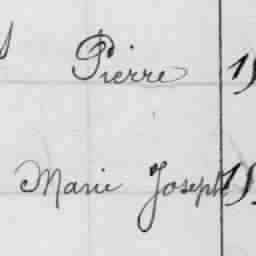 Pierre 19
Marie Joseph 19